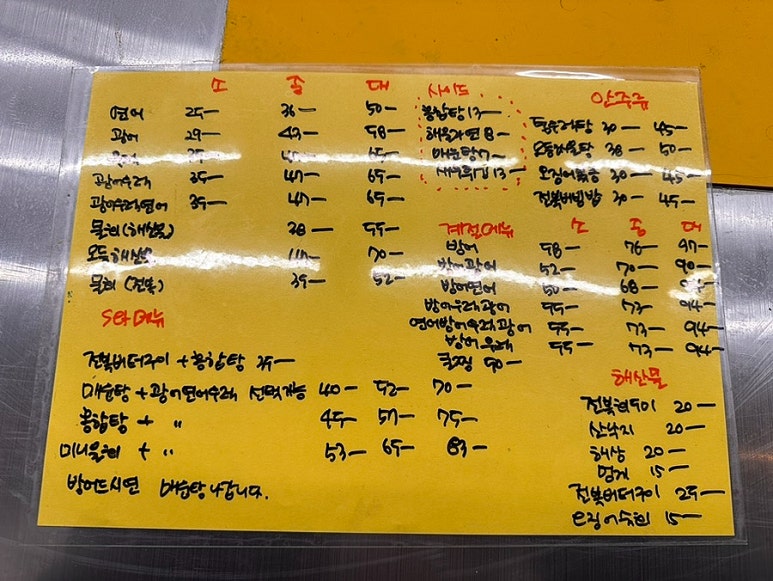 소 중 대
연어 25- 36- 50-
광어 29- 43- 58-
35- 47- 65-
광어우럭 35- 47- 65-
광어우럭연어 35- 47- 65-
물회(해산물) 38- 55-
모듬해산물 70-
물회(전복) 39- 52-
Set메뉴
전복버터구이 + 홍합탕 35-
매운탕 + 광어연어우럭 선택가능 40- 52- 70-
홍합탕 + " 45- 57- 75-
미니물회 + " 53- 65- 83-
방어드시면 매운탕 나갑니다.
사이드
홍합탕 13-
해물라면 8-
매운탕 7-
새우튀김 13-
안주류
30- 45-
모듬해물탕 38- 50-
오징어볶음 30- 45-
전복비빔밥 30- 45-
계절메뉴 소 중 대
방어 58- 76- 97-
방어광어 52- 70- 90-
방어연어 50- 68-
방어우럭광어 55- 73- 94-
연어방어우럭광어 55- 73- 94-
방어우럭 55- 73- 94-
50-
해산물
전복회구이 20-
산낙지 20-
해삼 20-
멍게 15-
전복버터구이 25-
오징어숙회 15-